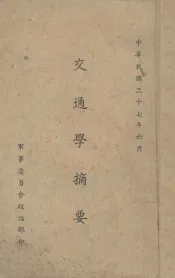 中華民國二十七年六月
交通學摘要
軍事委員會政治部印